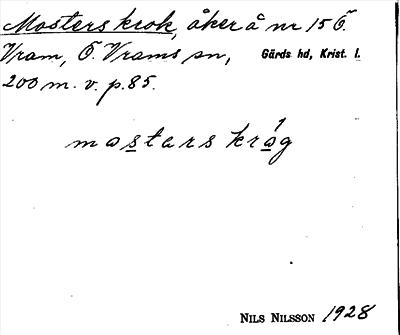 Mosters krok, åker å nr 15 Ö.
Vram, Ö. Vrams sn, Gärds hd, Krist. l.
200 m. v. p. 85.
mosters kråg
NILS NILSSON 1928